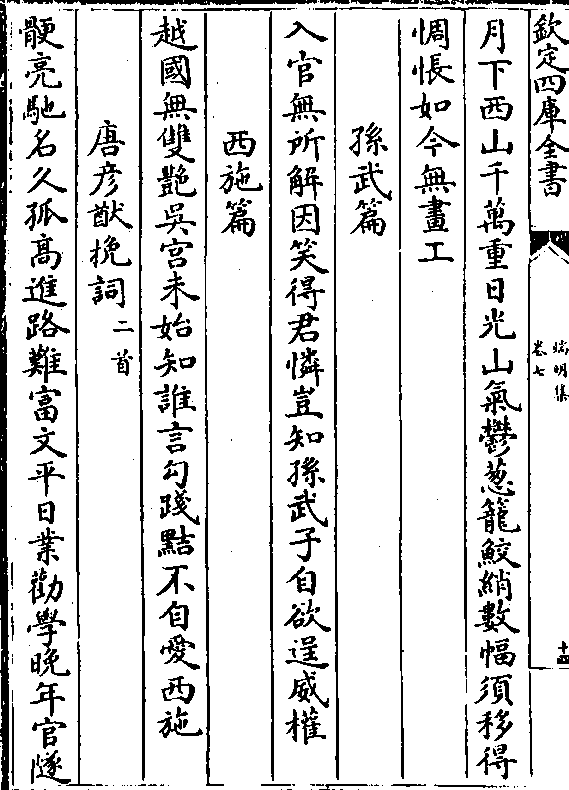 欽定四庫全書
端明集
卷七
十四
月下西山千萬重日光山氣鬱葱籠鮫綃數幅須移得
惆悵如今無畫工
孫武篇
入官無所解因笑得君憐豈知孫武子自欲逞威權
西施篇
越國無雙艷吳宮未始知誰言勾踐黠不自愛西施
唐彦猷挽詞二首
骾亮馳名久孤高進路難富文平日業勸學晚年官隧